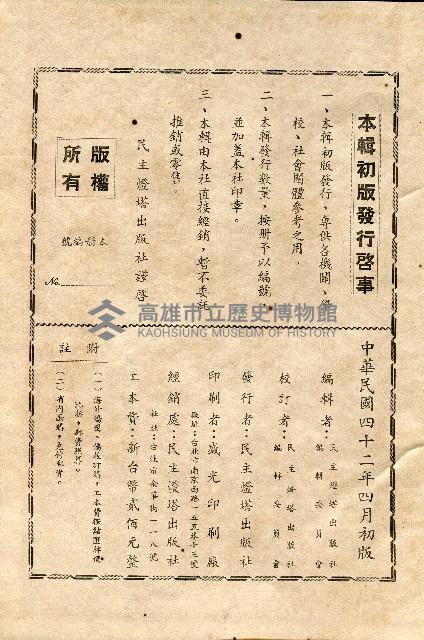 本輯初版發行啓事
一、本輯初版發行，專供各機關、學
校、社會團體參考之用。
二、本輯發行數量，按册予以編號，
並加蓋本社印章。
三、本輯由本社直接經銷，暫不委託
推銷或零售。
民主燈塔出版社謹啓
版權
所有
本册編號
No.
高雄市立歷史博物館
KAOHSIUNG MUSEUM OF HISTORY
中華民國四十二年四月初版
編輯者：民主燈塔出版社
編輯委員會
校訂者：民主燈塔出版社
編輯委員會
發行者：民主燈塔出版社
印刷者：盛光印刷廠
廠址：台北市南京西路一五五巷十三號
經銷處：民主燈塔出版社
社址：台北市金華街一一八號
工本費：新台幣貳佰元整
附註
（一）海外僑團，僑校訂購，工本費按結匯牌價
折核，郵費照算。
（二）省內函購，免付郵資。